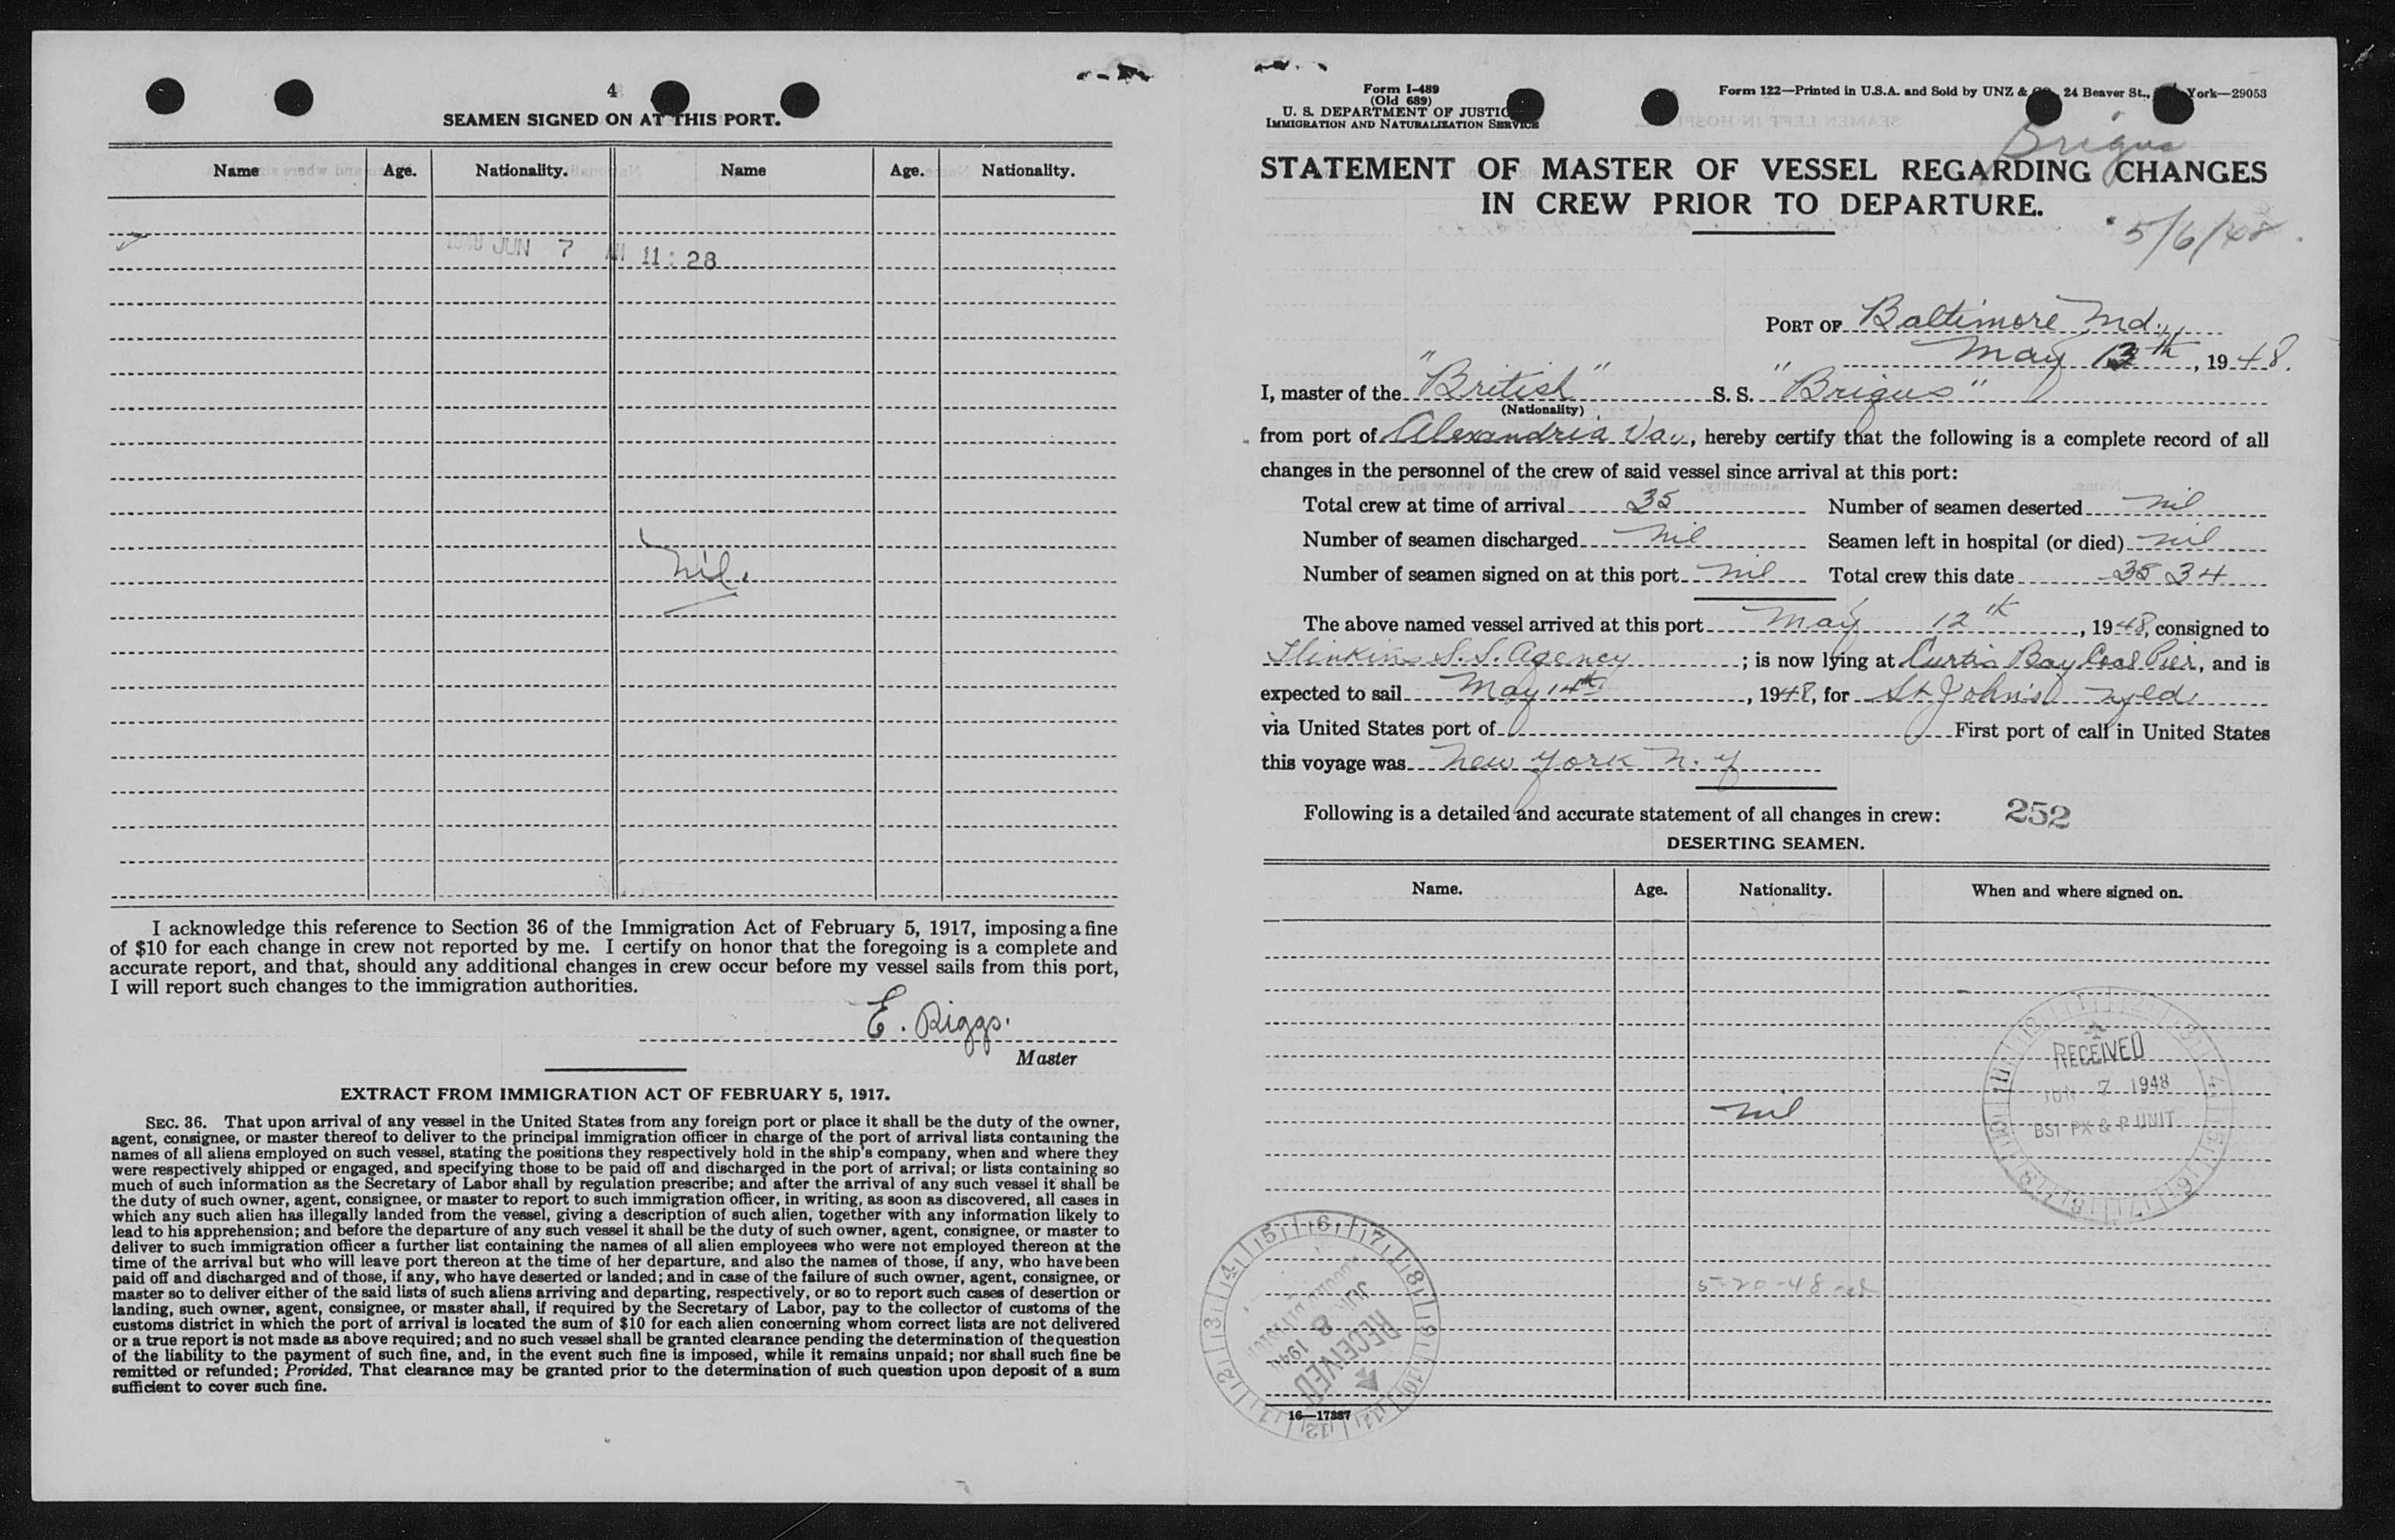 4
SEAMEN SIGNED ON AT THIS PORT.
Name Age. Nationality. Name Age. Nationality.
JUN 7 11:28
Nil.
I acknowledge this reference to Section 36 of the Immigration Act of February 5, 1917, imposing a fine
of $10 for each change in crew not reported by me. I certify on honor that the foregoing is a complete and
accurate report, and that, should any additional changes in crew occur before my vessel sails from this port,
I will report such changes to the immigration authorities.
E. Riggs.
Master
EXTRACT FROM IMMIGRATION ACT OF FEBRUARY 5, 1917.
SEC. 36. That upon arrival of any vessel in the United States from any foreign port or place it shall be the duty of the owner,
agent, consignee, or master thereof to deliver to the principal immigration officer in charge of the port of arrival lists containing the
names of all aliens employed on such vessel, stating the positions they respectively hold in the ship's company, when and where they
were respectively shipped or engaged, and specifying those to be paid off and discharged in the port of arrival; or lists containing so
much of such information as the Secretary of Labor shall by regulation prescribe; and after the arrival of any such vessel it shall be
the duty of such owner, agent, consignee, or master to report to such immigration officer, in writing, as soon as discovered, all cases in
which any such alien has illegally landed from the vessel, giving a description of such alien, together with any information likely to
lead to his apprehension; and before the departure of any such vessel it shall be the duty of such owner, agent, consignee, or master to
deliver to such immigration officer a further list containing the names of all alien employees who were not employed thereon at the
time of the arrival but who will leave port thereon at the time of her departure, and also the names of those, if any, who have been
paid off and discharged and of those, if any, who have deserted or landed; and in case of the failure of such owner, agent, consignee, or
master so to deliver either of the said lists of such aliens arriving and departing, respectively, or so to report such cases of desertion or
landing, such owner, agent, consignee, or master shall, if required by the Secretary of Labor, pay to the collector of customs of the
customs district in which the port of arrival is located the sum of $10 for each alien concerning whom correct lists are not delivered
or a true report is not made as above required; and no such vessel shall be granted clearance pending the determination of the question
of the liability to the payment of such fine, and, in the event such fine is imposed, while it remains unpaid; nor shall such fine be
remitted or refunded; Provided, That clearance may be granted prior to the determination of such question upon deposit of a sum
sufficient to cover such fine.
Form I-489
(Old 689)
U. S. DEPARTMENT OF JUSTIC
IMMIGRATION AND NATURALIZATION SERVICE
Form 122—Printed in U.S.A. and Sold by UNZ & 24 Beaver St., York—29053
Brigus
STATEMENT OF MASTER OF VESSEL REGARDING CHANGES
IN CREW PRIOR TO DEPARTURE.
5/6/48
PORT OF Baltimore Md.,
May 13th, 1948.
I, master of the "British" S. S. "Brigus"
(Nationality)
from port of Alexandria Va., hereby certify that the following is a complete record of all
changes in the personnel of the crew of said vessel since arrival at this port:
Total crew at time of arrival 35 Number of seamen deserted nil
Number of seamen discharged nil Seamen left in hospital (or died) nil
Number of seamen signed on at this port nil Total crew this date 35 34
The above named vessel arrived at this port May 12th, 1948, consigned to
Hinkins S.S. Agency; is now lying at Curtis Bay Coal Pier, and is
expected to sail May 14th, 1948, for St John's Nfld
via United States port of First port of call in United States
this voyage was New York N.Y
Following is a detailed and accurate statement of all changes in crew: 252
DESERTING SEAMEN.
Name. Age. Nationality. When and where signed on.
RECEIVED
JUN 7 1948
BSI PX & P UNIT
nil
5-20-48
RECEIVED
JUN 8 1948
16—17387